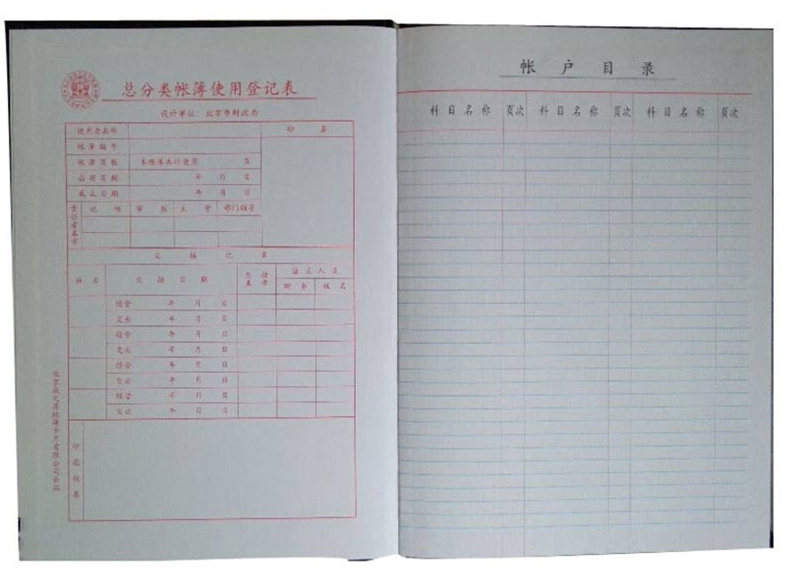 总分类帐薄使用登记表
设计单位：北京市财政局
使用者名称 印鉴
帐薄编号
帐薄页数 本帐薄共计使用 页
启用日期 年 月 日
截止日期 年 月 日
责任者盖章 记帐 审核 主管 部门领导
交接记录
姓名 交接日期 交接盖章 监交人员
职务 姓名
接管 年 月 日
交出 年 月 日
接管 年 月 日
交出 年 月 日
接管 年 月 日
交出 年 月 日
接管 年 月 日
交出 年 月 日
印花税票
帐户目录
科目名称 页次 科目名称 页次 科目名称 页次